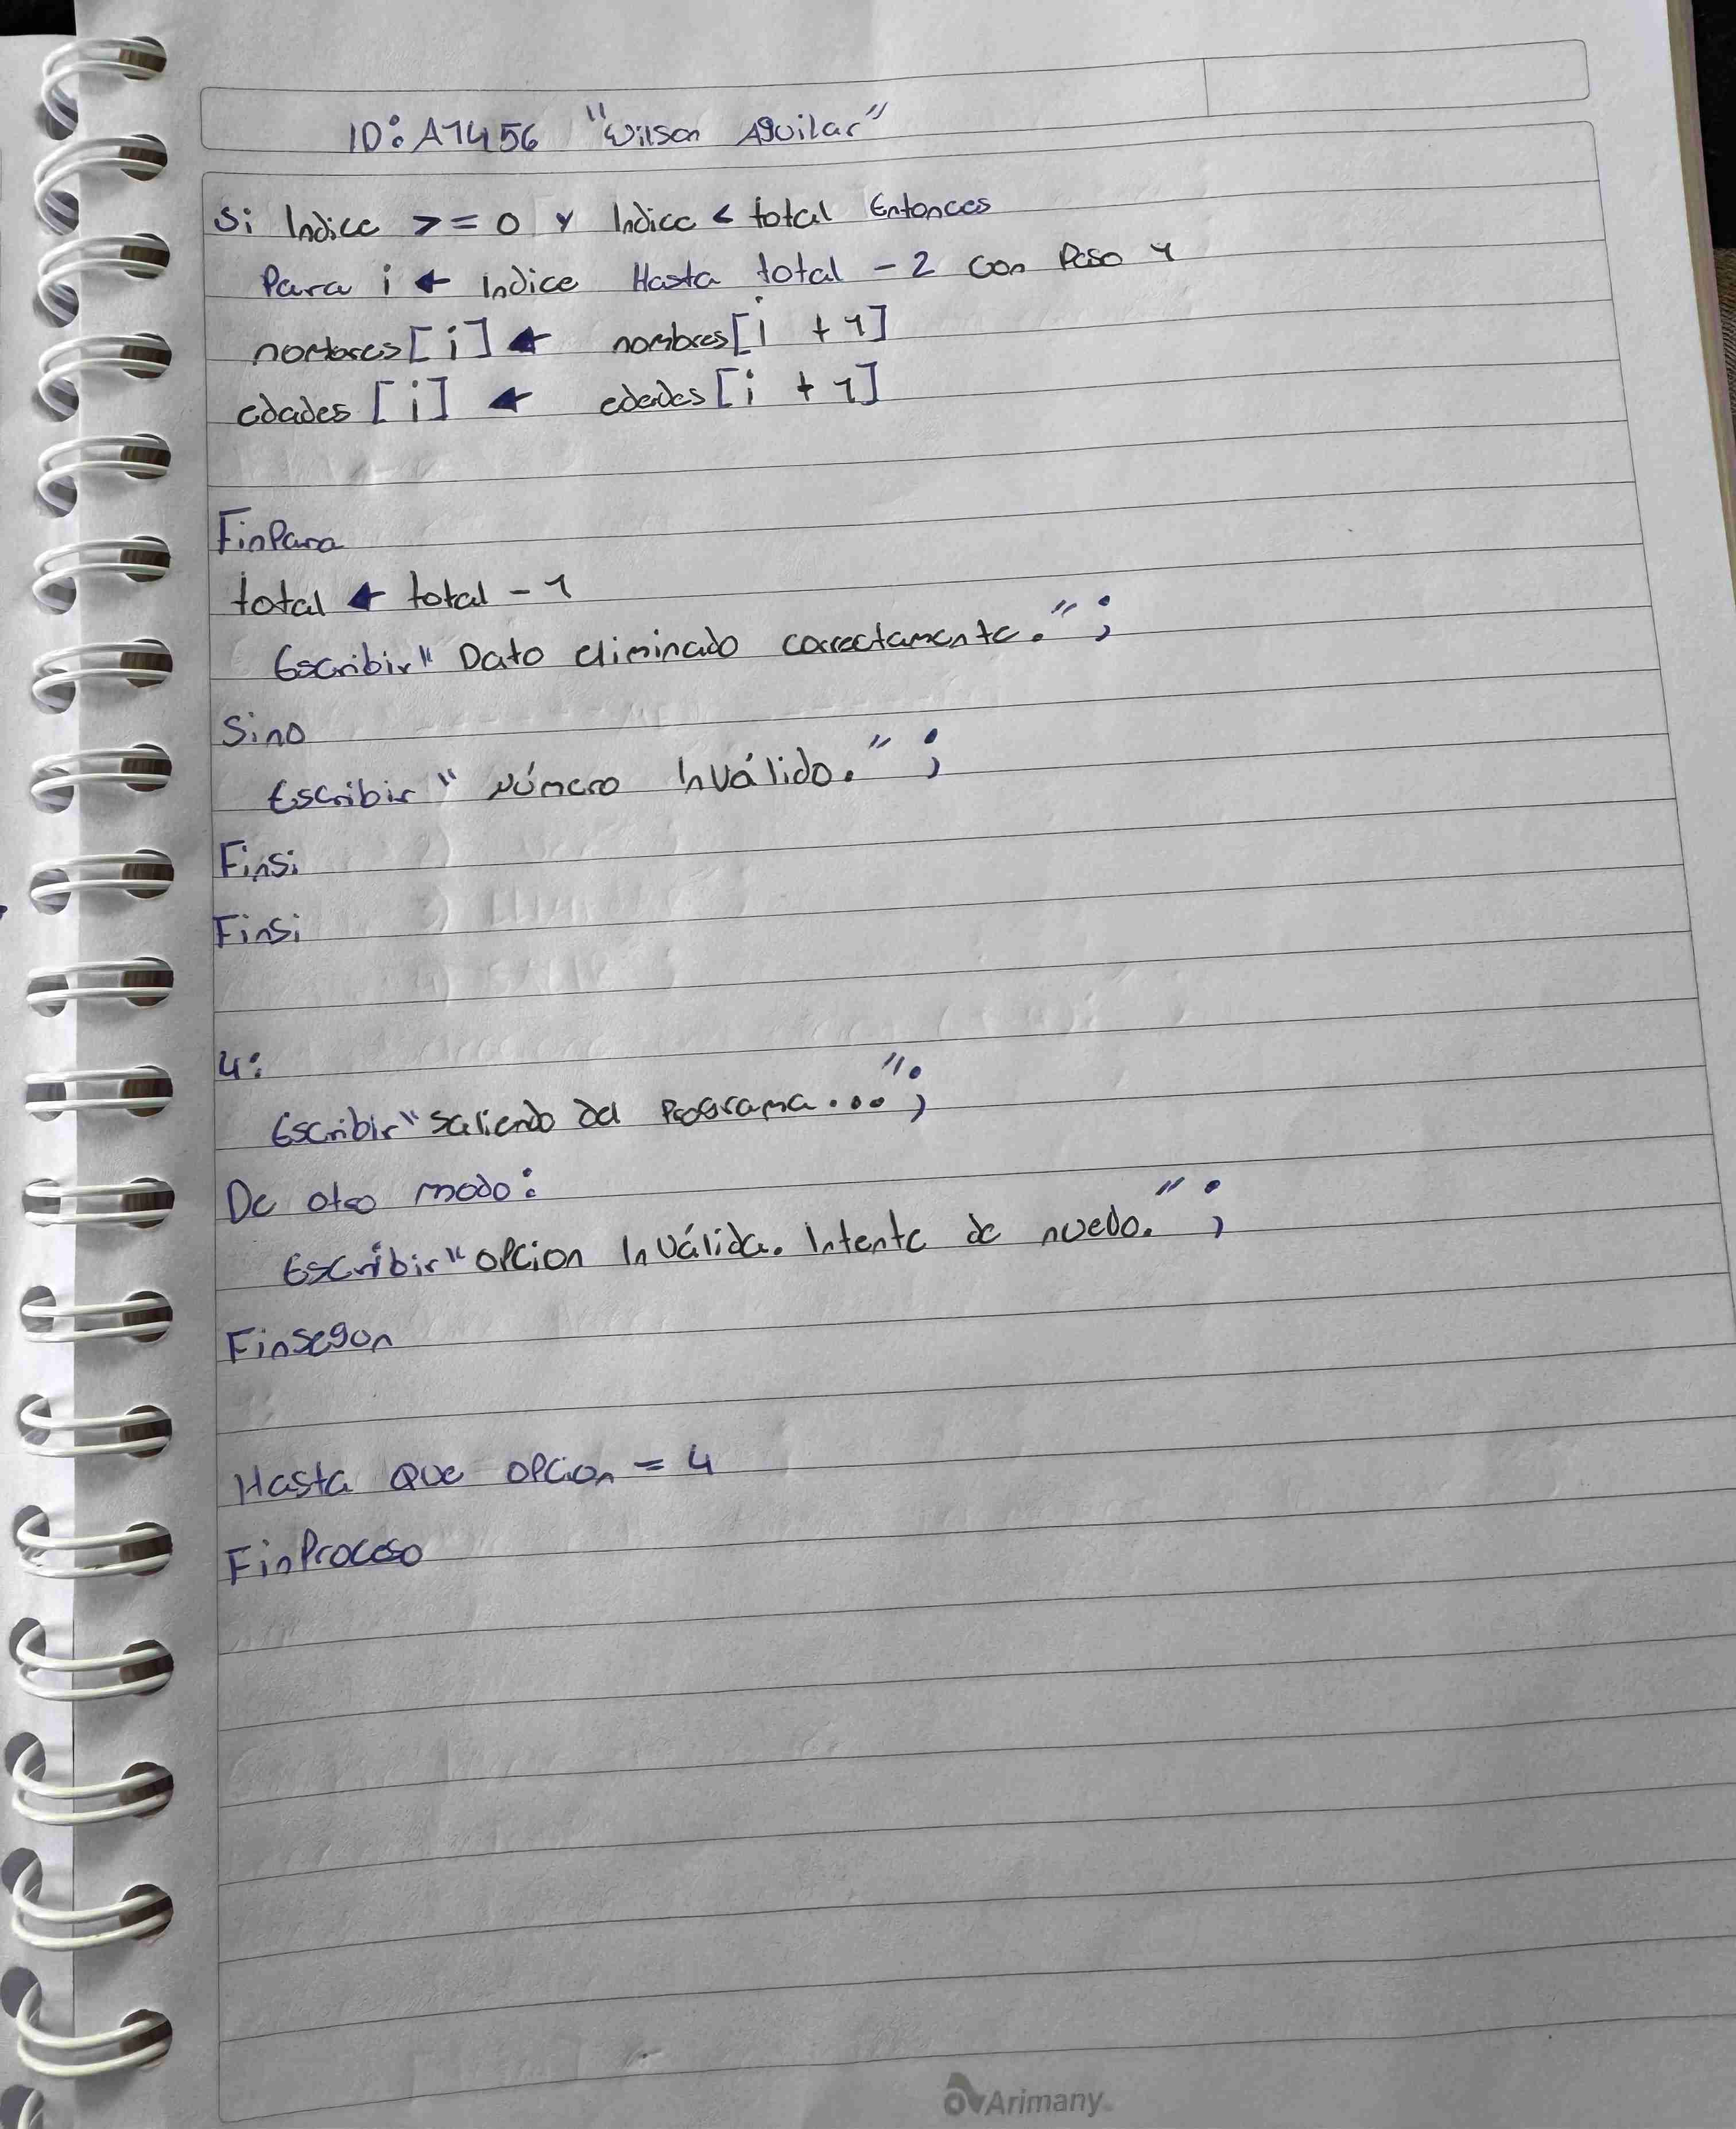 ID: A1456 "Wilson Aguilar"
Si Indice >= 0 y Indice < total Entonces
Para i ← Indice Hasta total - 2 Con Paso 1
nombres[i] ← nombres[i + 1]
edades [i] ← edades[i + 1]
FinPara
total ← total - 1
Escribir" Dato eliminado correctamente.";
Sino
Escribir" Número Inválido.";
Finsi
Finsi
4:
Escribir" saliendo del Programa...";
De otro modo:
Escribir" opcion Inválida. Intente de nuevo.";
Finsegun
Hasta Que opcion = 4
FinProceso
Arimany